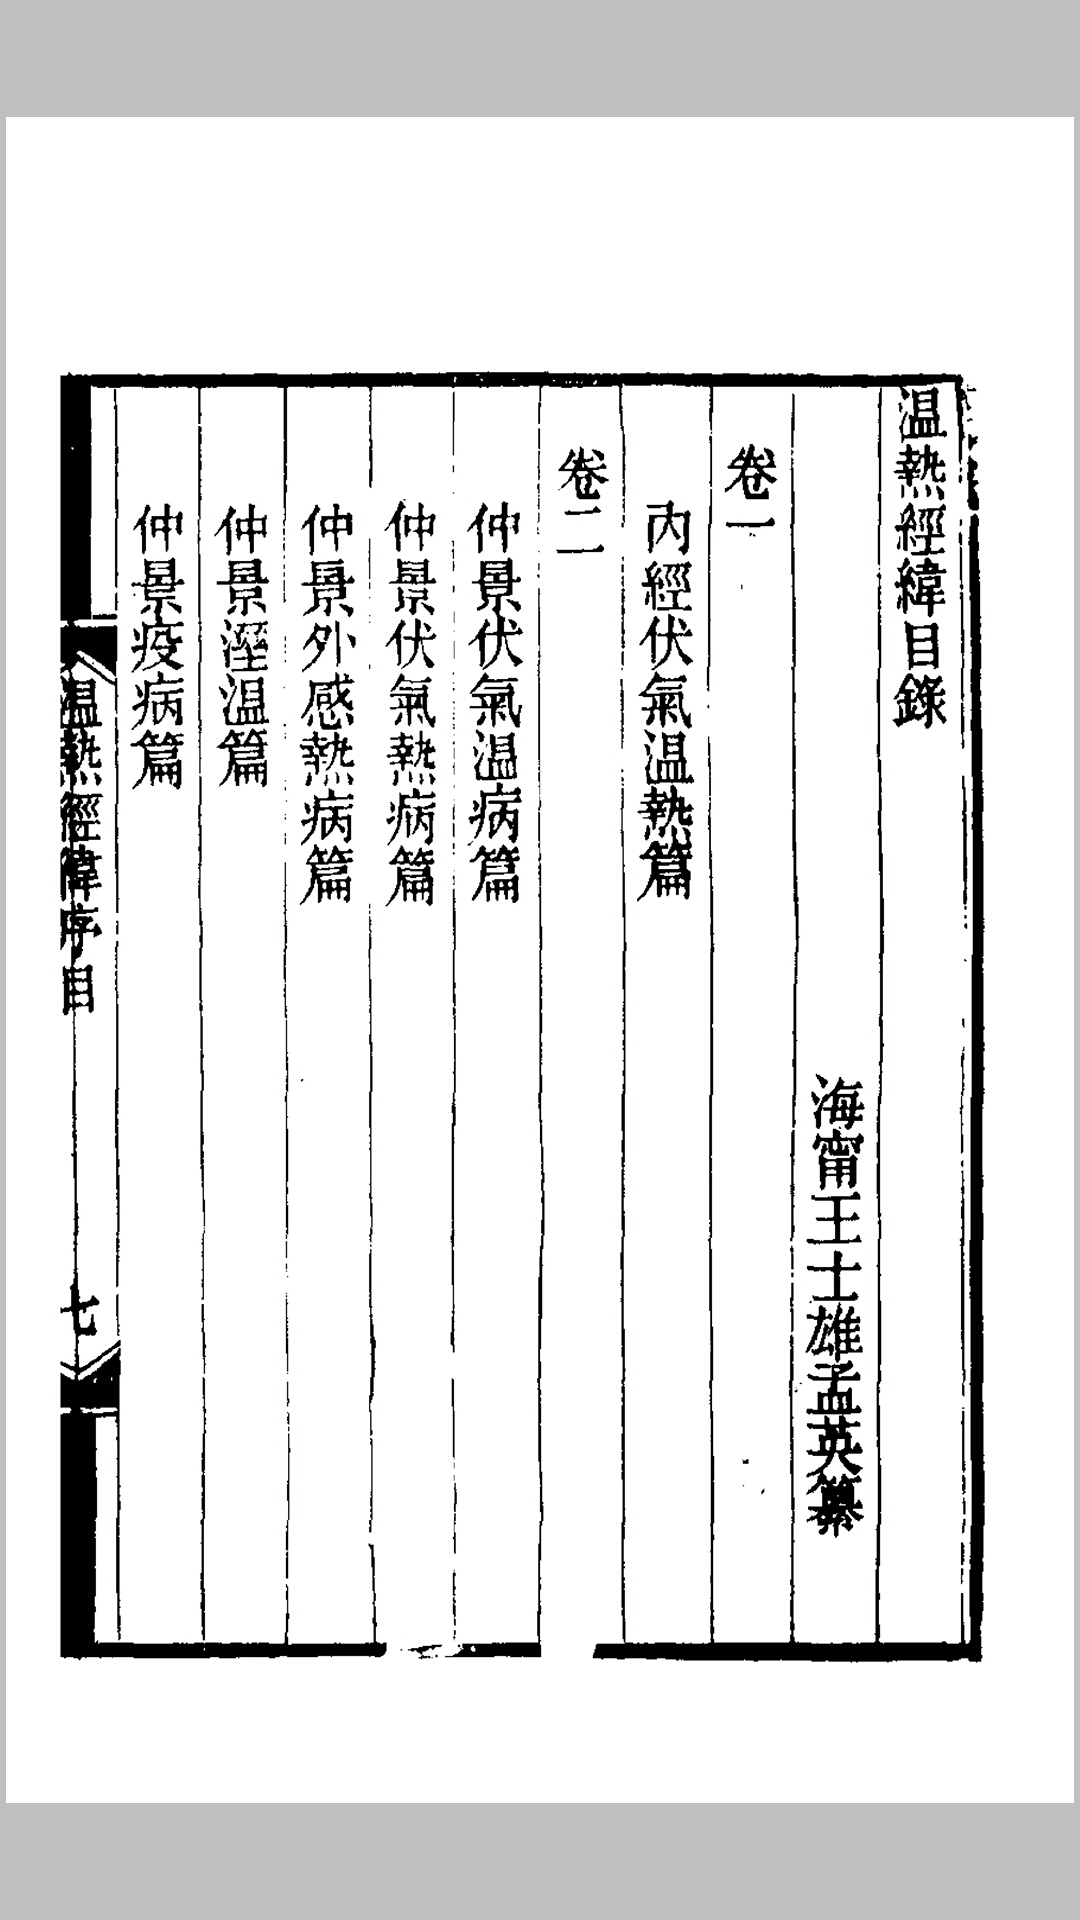 温熱經緯目錄
海甯王士雄孟英纂
卷一
內經伏氣温熱篇
卷二
仲景伏氣温病篇
仲景伏氣熱病篇
仲景外感熱病篇
仲景溼温篇
仲景疫病篇
温熱經緯序目
七